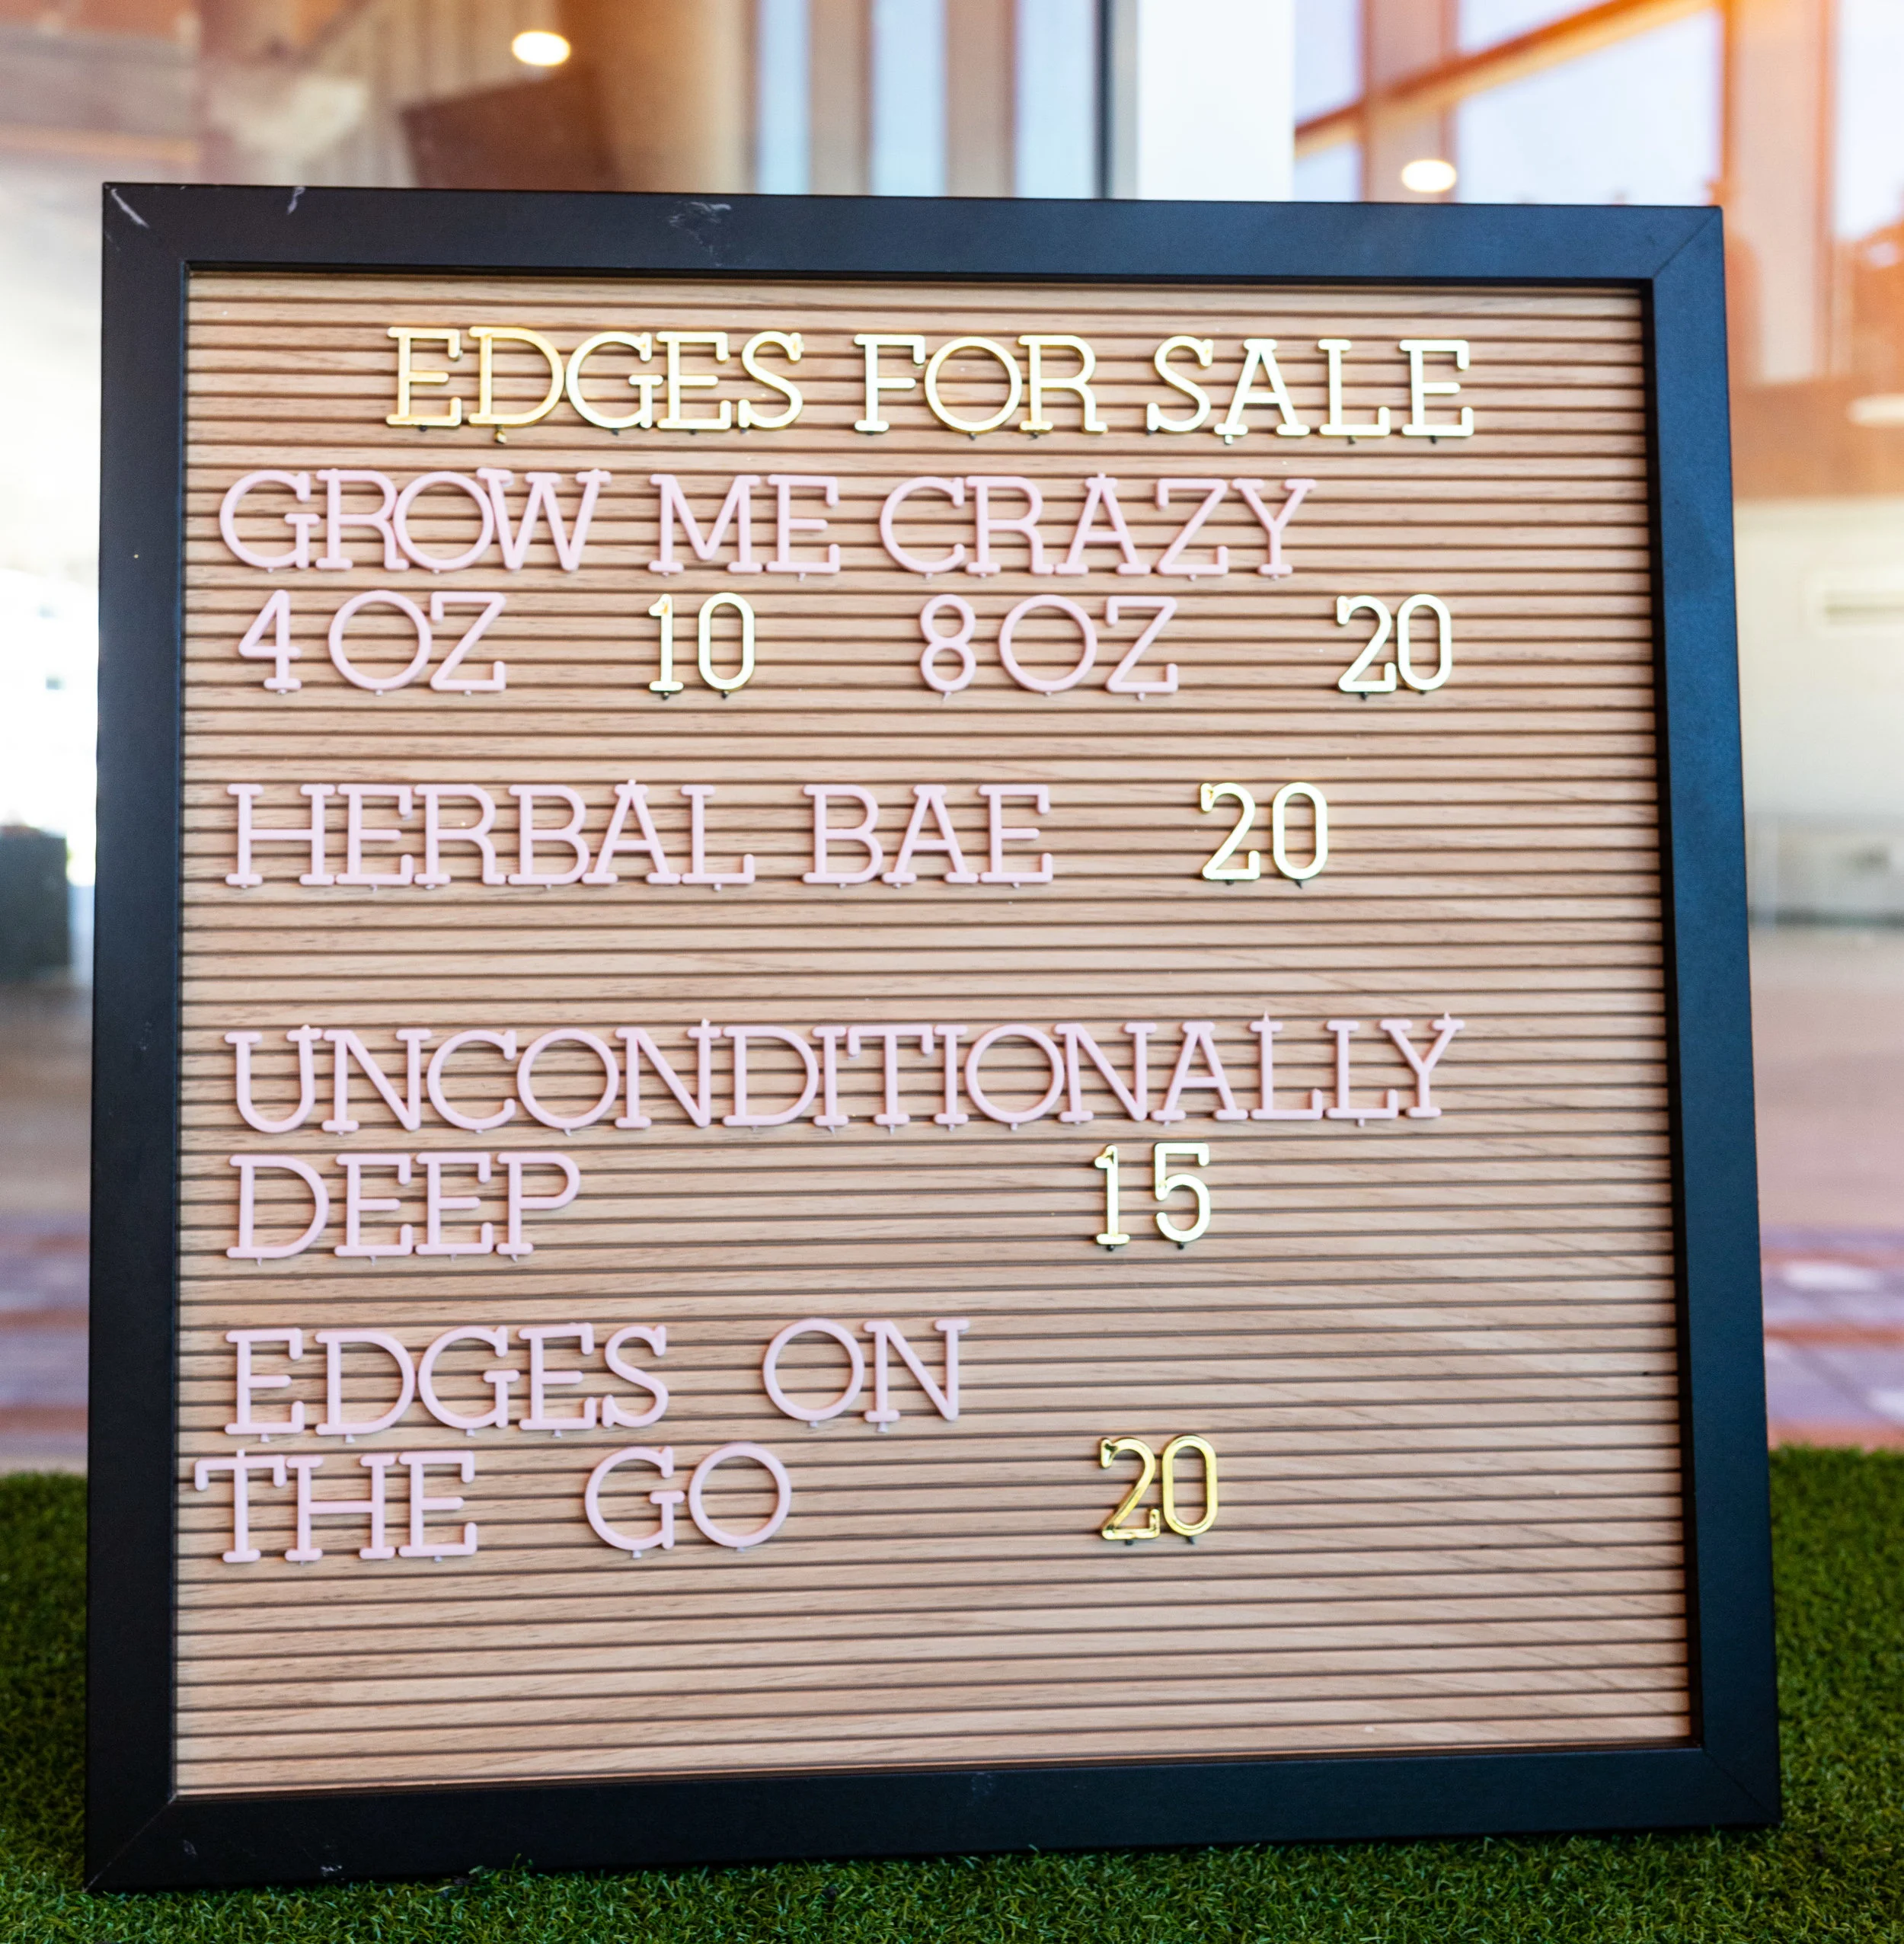 EDGES FOR SALE
GROW ME CRAZY
4OZ 10 8OZ 20
HERBAL BAE 20
UNCONDITIONALLY
DEEP 15
EDGES ON
THE GO 20